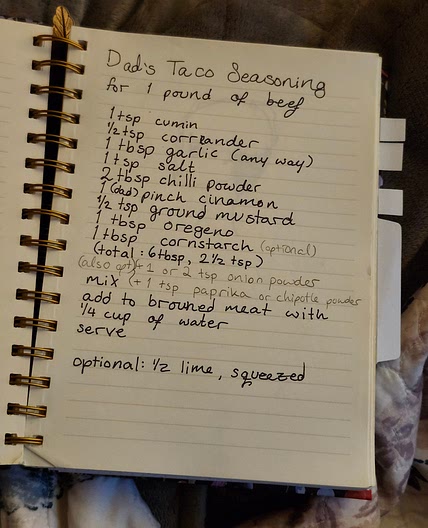 Dad's Taco Seasoning
for 1 pound of beef
1 tsp cumin
1/2 tsp correander
1 tbsp garlic (any way)
1 tsp salt
2 tbsp chilli powder
1 (dad) pinch cinamon
1/2 tsp ground mustard
1 tbsp oregeno
1 tbsp cornstarch (optional)
(total: 6tbsp, 2 1/2 tsp)
(also opt) +1 or 2 tsp onion powder
mix (+ 1 tsp paprika or chipotle powder
add to browned meat with
1/4 cup of water
serve
optional: 1/2 lime, squeezed